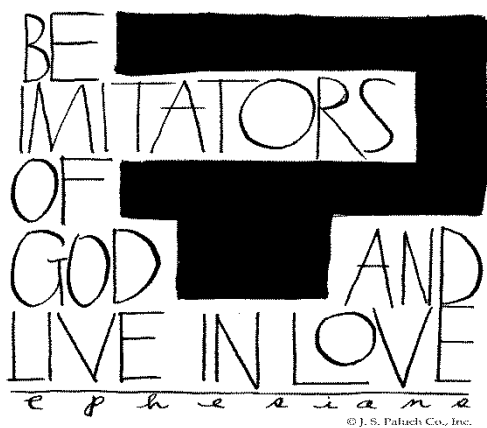 BE
IMITATORS
OF
GOD AND
LIVE IN LOVE
ephesians
© J. S. Paluch Co., Inc.